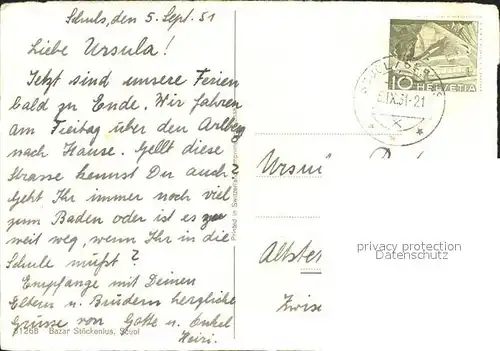 Schuls, den 5. Sept. 51
Liebe Ursula!
Jetzt sind unsere Ferien
bald zu Ende. Wir fahren
am Freitag über den Arlberg
nach Hause. Gellt diese
Strasse kennst Du auch?
Geht Ihr immer noch viel
zum Baden oder ist es zu
weit weg, wenn Ihr in die
Schule müsst?
Empfange mit Deinen
Eltern u. Brüdern herzliche
Grüsse von Gotte u. Onkel
Heiri.
1268 Bazar Stöckenius, Scuol
Printed in Switzerland
10 HELVETIA
IX.51-21
privacy protection
Datenschutz